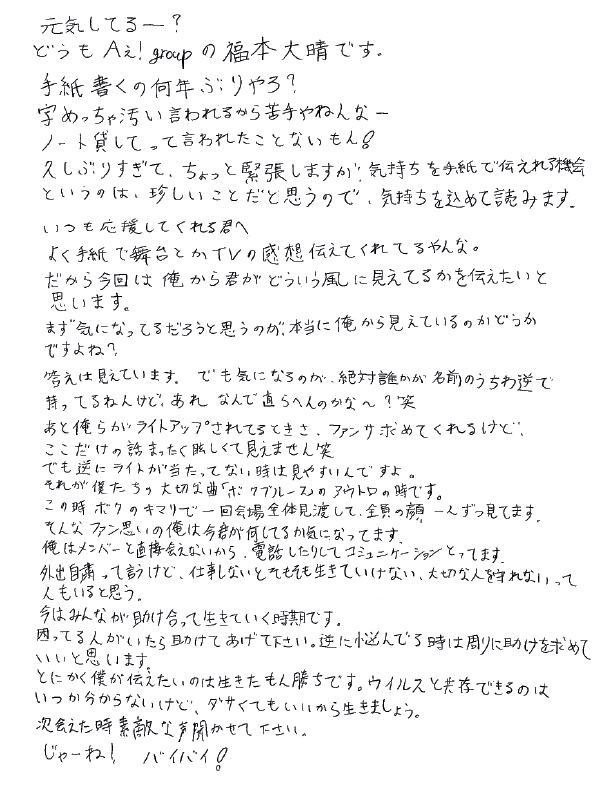 元気してるー？
どうもAぇ! groupの福本大晴です。
手紙書くの何年ぶりやろ？
字めっちゃ汚い言われるから苦手やねんなー
ノート貸してって言われたことないもん!
久しぶりすぎて、ちょっと緊張しますが、気持ちを手紙で伝えれる機会
というのは、珍しいことだと思うので、気持ちを込めて読みます。
いつも応援してくれる君へ
よく手紙で舞台とかTVの感想伝えてくれてるやんな。
だから今回は俺から君がどういう風に見えてるかを伝えたいと
思います。
まず気になってるだろうと思うのが、本当に俺から見えているのかどうか
ですよね？
答えは見えています。でも気になるのが、絶対誰かが名前のうちわ逆で
持ってるねんけど、あれ なんで直らへんのかな～？笑
あと俺らがライトアップされてるときさ、ファンサ求めてくれるけど、
ここだけの話まったく眩しくて見えません笑
でも逆にライトが当たってない時は見やすいんですよ。
それが僕たちの大切な曲「ボクブルース」のアウトロの時です。
この時ボクのキマリで一回会場全体見渡して、全員の顔 一人ずつ見てます。
そんなファン思いの俺は今君が何してるか気になってます。
俺はメンバーと直接会えないから、電話したりしてコミュニケーションとってます。
外出自粛って言うけど、仕事しないとそもそも生きていけない、大切な人を守れないって
人もいると思う。
今はみんなが助け合って生きていく時期です。
困ってる人がいたら助けてあげて下さい。逆に悩んでる時は周りに助けを求めて
いいと思います。
とにかく僕が伝えたいのは生きたもん勝ちです。ウイルスと共存できるのは
いつか分からないけど、ダサくてもいいから生きましょう。
次会えた時素敵な声聞かせて下さい。
じゃーね! バイバイ!